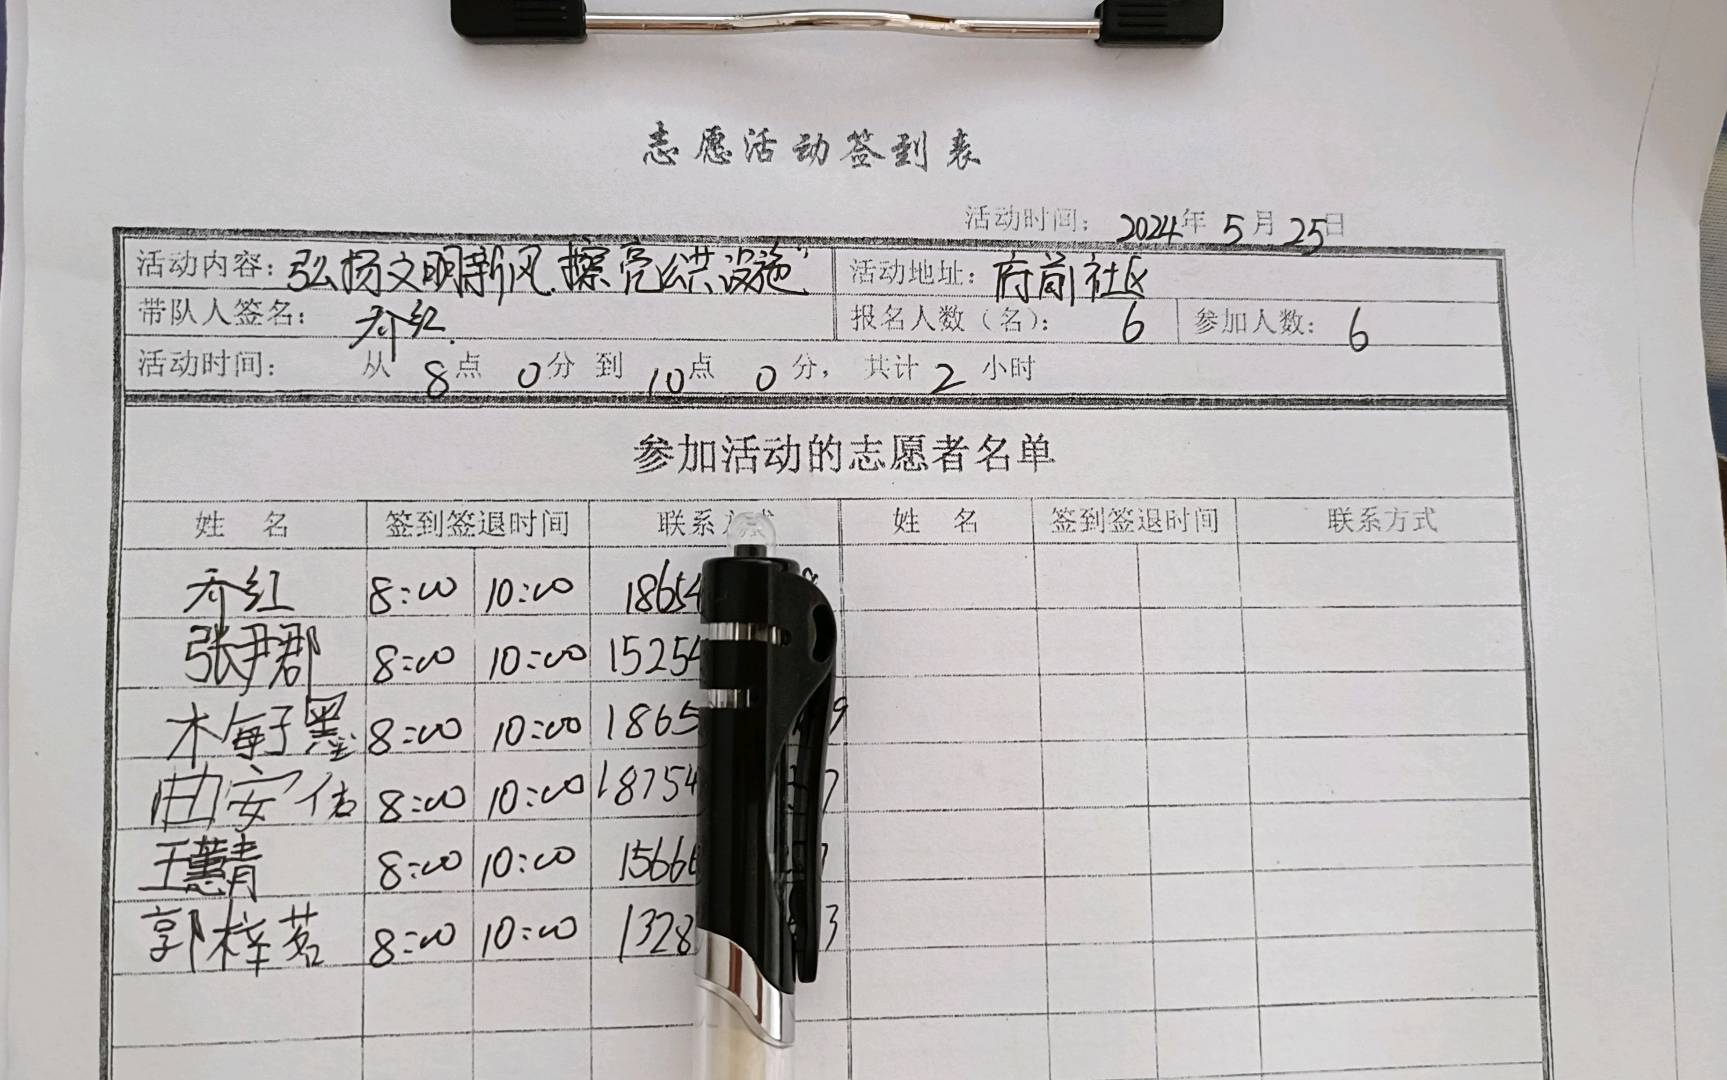 志愿活动签到表
活动时间: 2024年 5月 25日
活动内容: 弘扬文明新风.擦亮公共设施" 活动地址: 府前社区
带队人签名: 乔红. 报名人数(名): 6 参加人数: 6
活动时间: 从 8点 0分 到 10点 0分, 共计 2 小时
参加活动的志愿者名单
姓 名 签到签退时间 联系方式 姓 名 签到签退时间 联系方式
乔红 8:00 10:00 18654
张尹郡 8:00 10:00 15254
8:00 10:00 1865 9
曲安 8:00 10:00 18754 7
王蕙青 8:00 10:00 15666 7
郭梓茗 8:00 10:00 1328 3